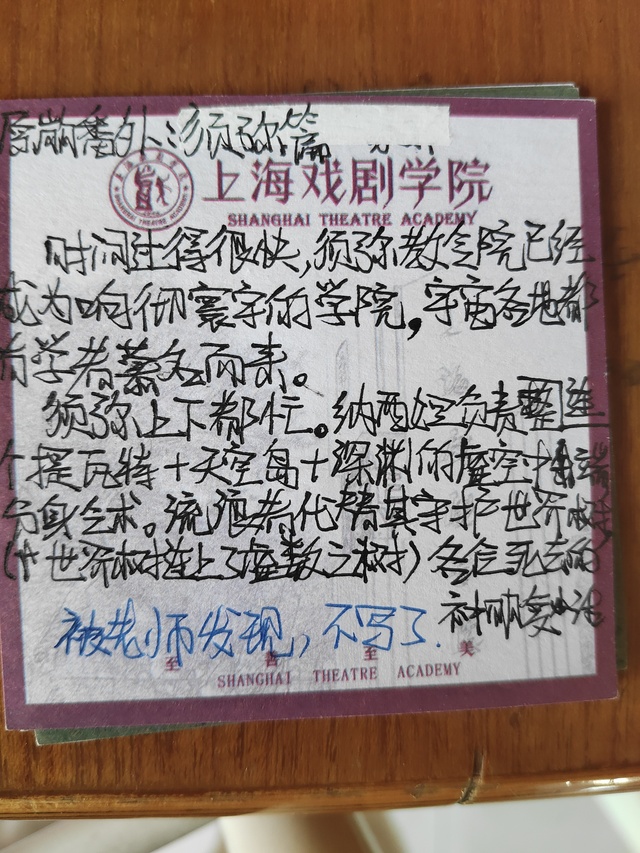 番外：须弥篇
上海戏剧学院
SHANGHAI THEATRE ACADEMY
时间过得很快，须弥教令院已经
成为响彻寰宇的学院，宇宙各地都
有学者慕名而来。
须弥上下都忙。纳西妲负责整连
个提瓦特+天空岛+深渊的虚空
分身乏术。流浪者代替其守护世界树
（世界树连上了虚数之树）各位死去的
神响复活
被老师发现，不写了.
至善至美
SHANGHAI THEATRE ACADEMY